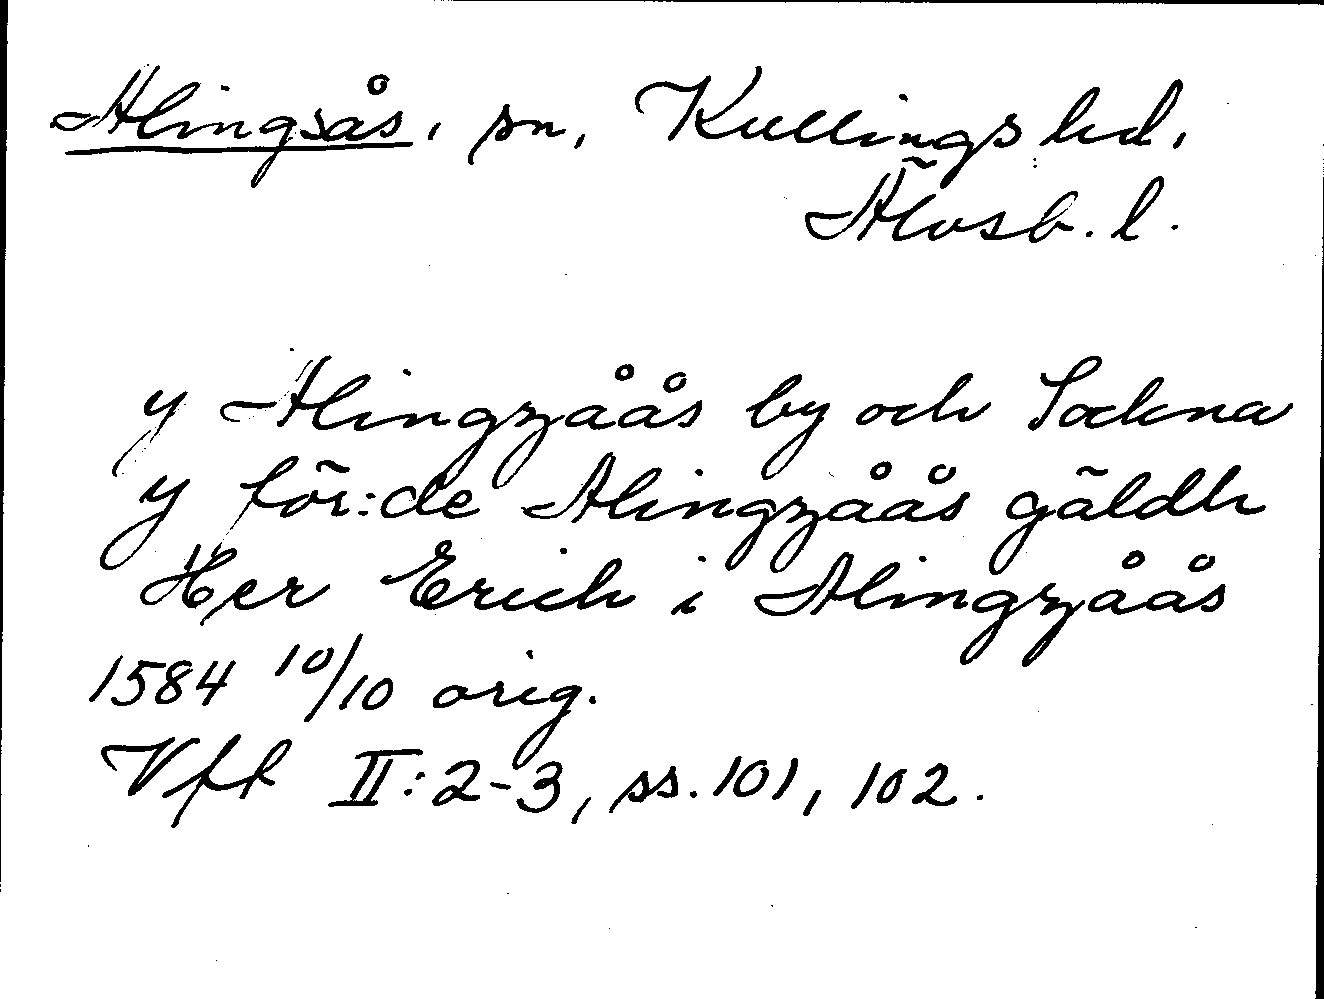 Alingsås, sn, Kullings hd,
Älvsb. l.
y Alingzåås by och Sockna
y för:de Alingzåås gäldh
Her Erich i Alingzåås
1584 10/10 orig.
Vfl II:2-3, ss. 101, 102.